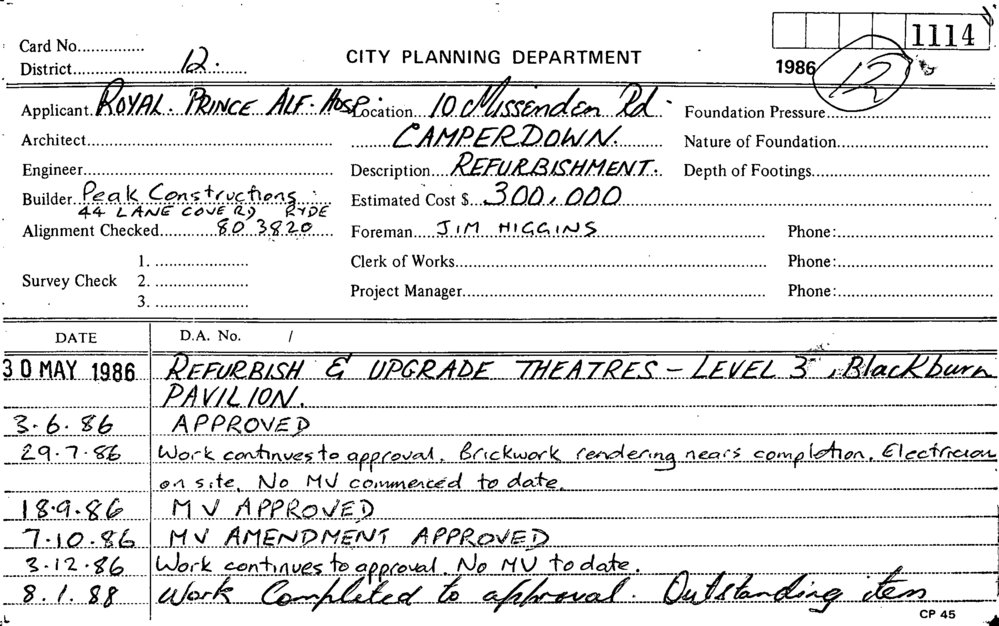 Card No.
CITY PLANNING DEPARTMENT
1114
District 12.
1986
12
Applicant ROYAL. PRINCE ALF. HOSP.
Location 10 Missenden Rd.
Foundation Pressure
Architect
CAMPERDOWN.
Nature of Foundation
Engineer
Description REFURBISHMENT.
Depth of Footings
Builder Peak Constructions
44 LANE COVE RD RYDE
Estimated Cost $ 300,000
Alignment Checked 80 3820
Foreman JIM HIGGINS
Phone:
Survey Check
1.
2.
3.
Clerk of Works
Phone:
Project Manager
Phone:
DATE
D.A. No. /
30 MAY 1986 REFURBISH & UPGRADE THEATRES - LEVEL 3, Blackburn
PAVILION.
3.6.86 APPROVED
29.7.86 Work continues to approval. Brickwork rendering nears completion. Electrician
on site. No MV commenced to date.
18.9.86 MV APPROVED
7.10.86 MV AMENDMENT APPROVED
3.12.86 Work continues to approval. No MV to date.
8.1.88 Work Completed to approval. Outstanding item
CP 45